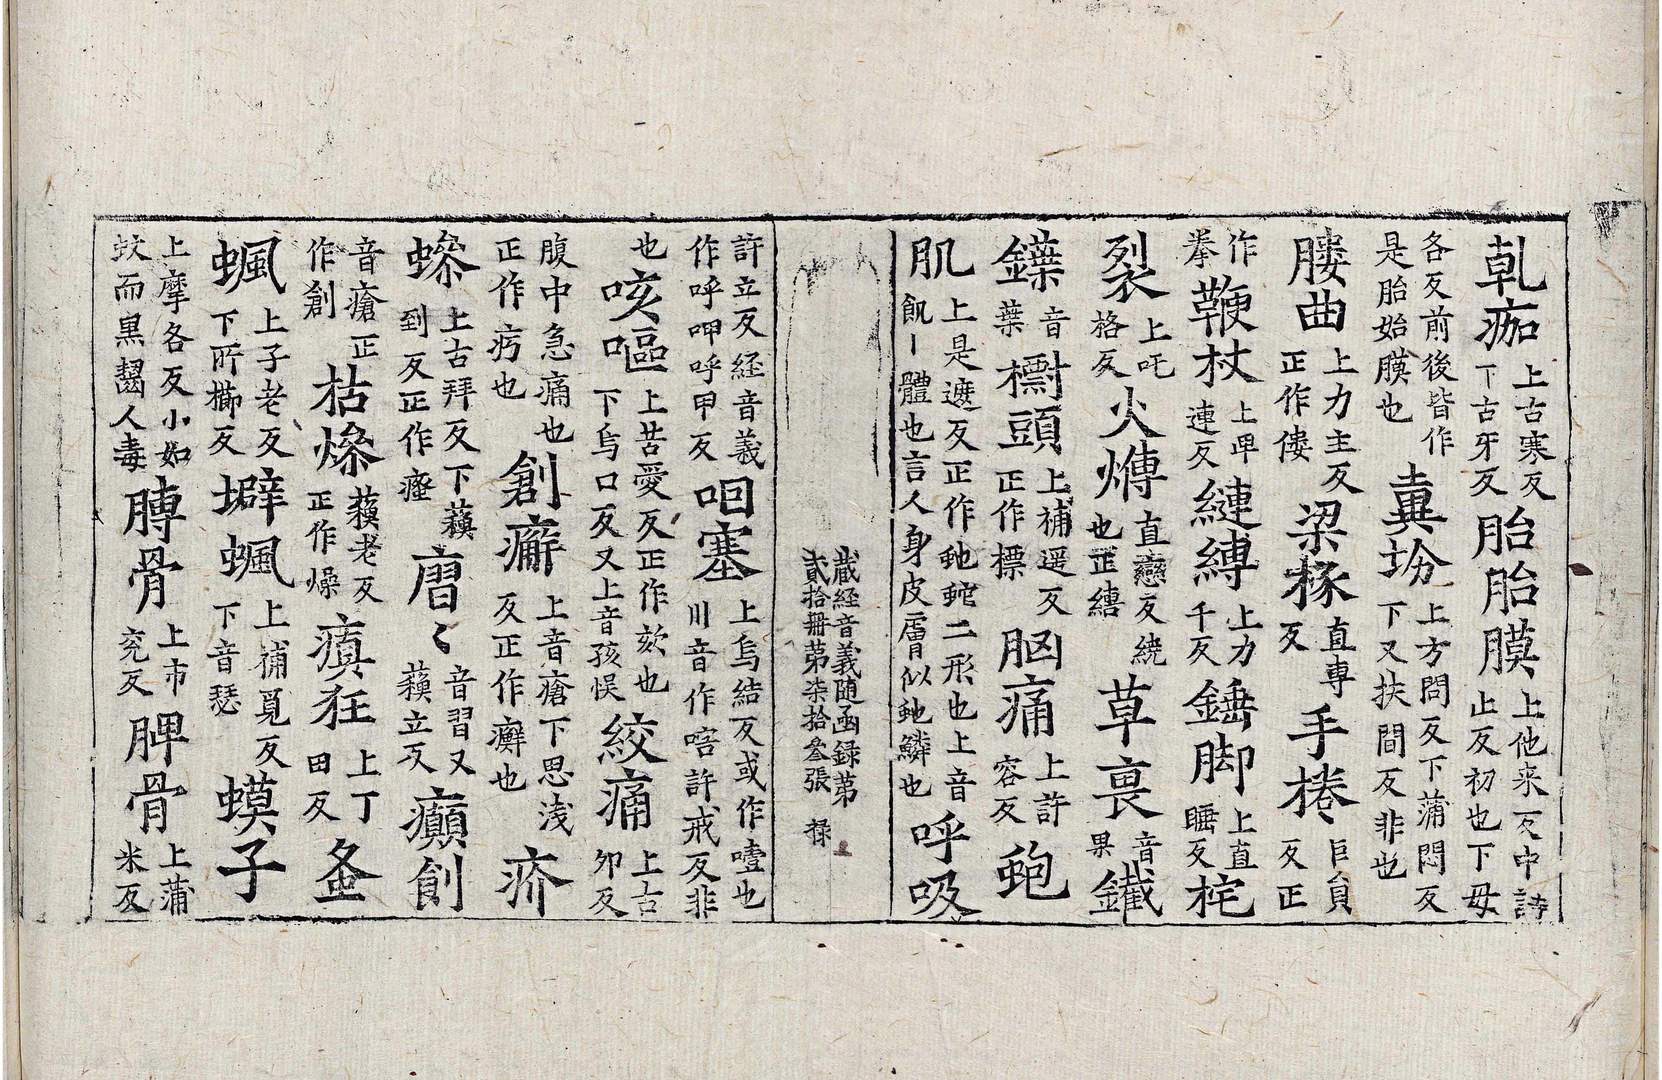 乹痂上古寒反下古牙反胎胎膜上他来反中詩止反初也下母
各反前後皆作是胎始膜也糞坋上方問反下蒲悶反下又扶間反非也
膢曲上力主反正作僂梁㧻直専反手捲巨負反正
作拳鞭杖上卑連反縺縛上力千反錘脚上直睡反㭐
裂上吒格反火煿直戀反繞也正䌸草褁音果鐵
鏶音葉㯡頭上補遥反正作標𦛁痛上許容反䖌
肌上是遮反正作虵蛇二形也上音飢丨體也言人身皮膚似虵鱗也呼吸
蔵経音義随函録第
貳拾冊第柒拾叄張 禄
許立反経音義作呼呷呼甲反咽塞上烏結反或作噎也川音作㗇許戒反非
也咳嘔上苦愛反正作欬也下烏口反又上音孩悮絞痛上古卯反
腹中急痛也正作疞也創癬上音瘡下思浅反正作癬也疥
𧎮上古拜反下蘓到反正作瘙𤺺〻音習又蘓立反癲創
音瘡正作創枯㷮蘓老反正作燥瘨狂上丁田反蚤
䗋上子老反下所櫛反壀䗋上補覓反下音瑟蟆子
上摩各反小如蚊而黒齧人毒膞骨上市兖反脾骨上蒲米反